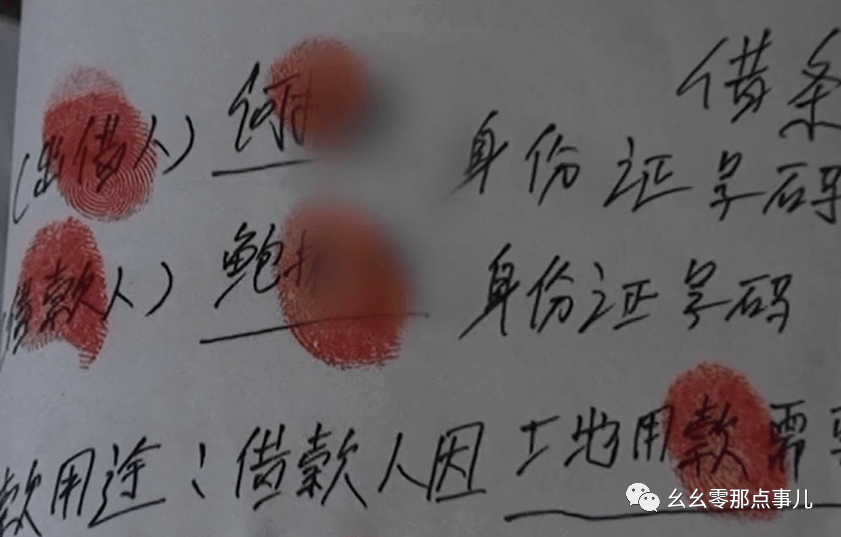 借条
(出借人) 何 身份证号码
借款人) 鲍 身份证号码
款用途:借款人因土地用款需
幺幺零那点事儿